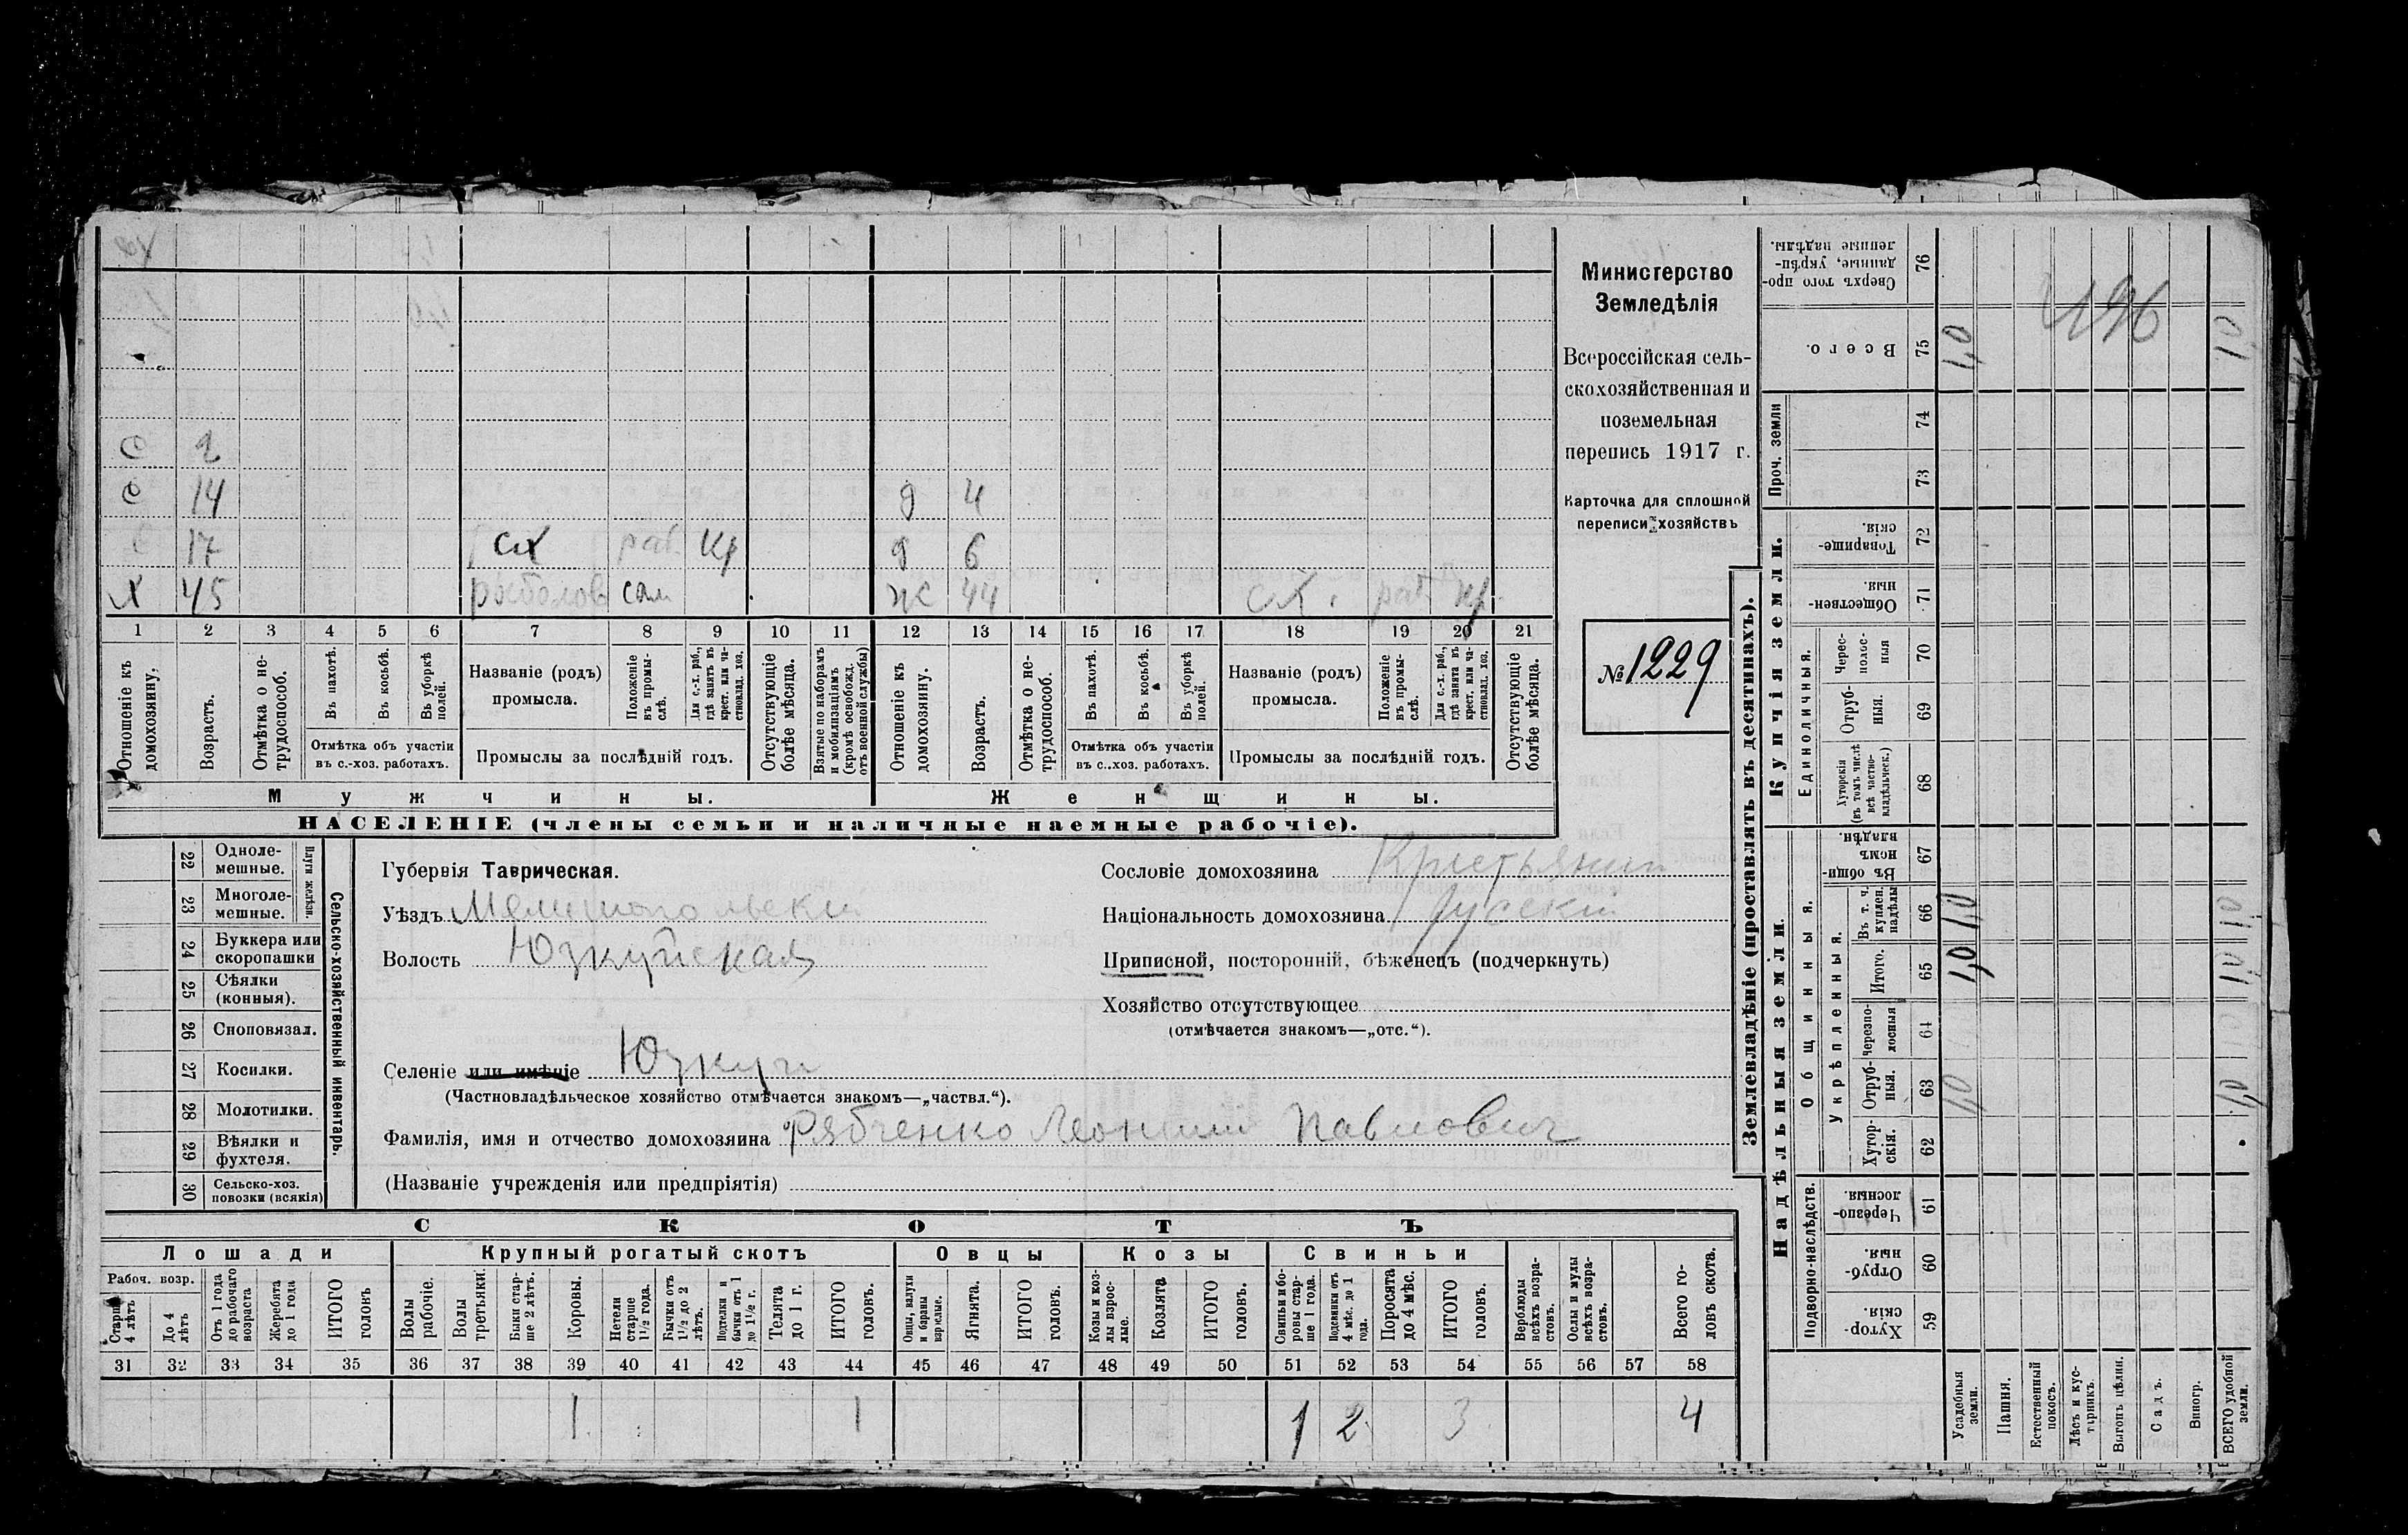 с 2
с 14 д 4
с 17 сх раб. кр д 6
х 45 рыболов сам ж 44 сх. раб кр.
1 2 3 4 5 6 7 8 9 10 11 12 13 14 15 16 17 18 19 20 21
Отношеніе къ домохозяину.
Возрастъ.
Отмѣтка о нетрудоспособ.
Въ пахотѣ.
Въ косьбѣ.
Въ уборкѣ полей.
Отмѣтка объ участіи
въ с.-хоз. работахъ.
Названіе (родъ)
промысла.
Положеніе въ промыслѣ.
Для с.-х. раб., гдѣ занятъ въ крест. или частновлад. хоз.
Промыслы за послѣдній годъ.
Отсутствующіе болѣе мѣсяца.
Взятые по наборамъ и мобилизаціямъ (кромѣ освобожд. отъ военной службы)
Отношеніе къ домохозяину.
Возрастъ.
Отмѣтка о нетрудоспособ.
Въ пахотѣ.
Въ косьбѣ.
Въ уборкѣ полей.
Отмѣтка объ участіи
въ с.-хоз. работахъ.
Названіе (родъ)
промысла.
Положеніе въ промыслѣ.
Для с.-х. раб., гдѣ занята въ крест. или частновлад. хоз.
Промыслы за послѣдній годъ.
Отсутствующіе болѣе мѣсяца.
Мужчины. Женщины.
НАСЕЛЕНІЕ (члены семьи и наличные наемные рабочіе).
Министерство
Земледѣлія
Всероссійская сель-
скохозяйственная и
поземельная
перепись 1917 г.
Карточка для сплошной
переписи хозяйствъ
№ 1229
22 Одноле-
мешные.
23 Многоле-
мешные.
Плуги желѣзн.
24 Буккера или
скоропашки
25 Сѣялки
(конныя).
26 Сноповязал.
27 Косилки.
28 Молотилки.
29 Вѣялки и
фухтеля.
30 Сельско-хоз.
повозки (всякія)
Сельско-хозяйственный инвентарь.
Губернія Таврическая.
Уѣздъ Мелитопольскій
Волость Юзкуйская
Селеніе или имѣніе Юзкуи
(Частновладѣльческое хозяйство отмѣчается знакомъ—„частвл.“).
Фамилія, имя и отчество домохозяина Рябченко Леонтій Павлович
(Названіе учрежденія или предпріятія)
Сословіе домохозяина Крестьянин
Національность домохозяина Русскій
Приписной, посторонній, бѣженецъ (подчеркнуть)
Хозяйство отсутствующее
(отмѣчается знакомъ—„отс.“).
СКОТЪ
Лошади Крупный рогатый скотъ Овцы Козы Свиньи
Рабоч. возр.
Старше 4 лѣтъ
До 4 лѣтъ
Отъ 1 года до рабочаго возраста
Жеребята до 1 года
ИТОГО головъ
Волы рабочіе.
Волы третьяки.
Быки старше 2 лѣтъ.
Коровы.
Нетели старше 1½ года.
Бычки отъ 1½ до 2 лѣтъ.
Подтелки и бычки отъ 1 до 1½ г.
Телята до 1 г.
ИТОГО головъ.
Овцы, валухи и бараны взрослые.
Ягнята.
ИТОГО головъ.
Козы и козлы взрослые.
Козлята
ИТОГО головъ.
Свиньи и боровы старше 1 года.
Подсвинки отъ 4 мѣс. до 1 года.
Поросята до 4 мѣс.
ИТОГО головъ.
Верблюды всѣхъ возрастовъ.
Ослы и мулы всѣхъ возрастовъ.
Всего головъ скота.
31 32 33 34 35 36 37 38 39 40 41 42 43 44 45 46 47 48 49 50 51 52 53 54 55 56 57 58
1 1 1 2 3 4
Землевладѣніе (проставлять въ десятинахъ).
Надѣльныя земли. Купчія земли. Проч. земли
Подворно-наслѣдств.
Общинныя.
Укрѣпленныя.
Единоличныя.
Хуторскія. 59
Отрубныя. 60
Черезполосныя. 61
Хуторскія. 62
Отрубныя. 63
Черезполосныя 64
Итого. 65
Въ т. ч. куплен. надѣлы 66
Въ общинномъ владѣн. 67
Хуторскія (въ томъ числѣ всѣ частновладѣльческ.) 68
Отрубныя. 69
Чересполосныя 70
Общественныя. 71
Товарищескія. 72
73
74
Всего. 75
Сверхъ того проданные, укрѣпленные надѣлы. 76
Усадебныя земли. 1,0 1,0 1,0
Пашня.
Естественный покосъ.
Лѣсъ и кустарникъ.
Выгонъ цѣлин.
Садъ.
Виногр.
ВСЕГО удобной земли.
196